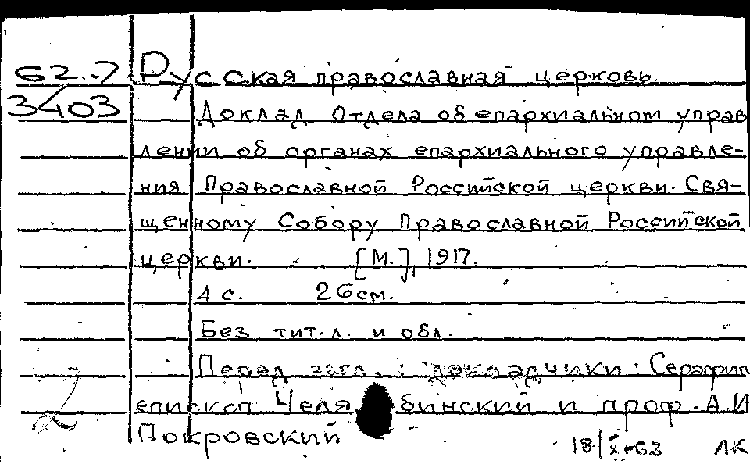 62.7 Русская православная церковь
3/403 Доклад Отдела об епархиальном управ
лении об органах епархиального управле-
ния Православной Российской церкви. Свя-
щенному Собору Православной Российской
церкви. [М.], 1917.
4 с. 26см.
Без тит.л. и обл.
Перед загл.: докладчики: Серафим
епископ Челябинский и проф. А.И
Покровский
2
18/X-63 ЛК